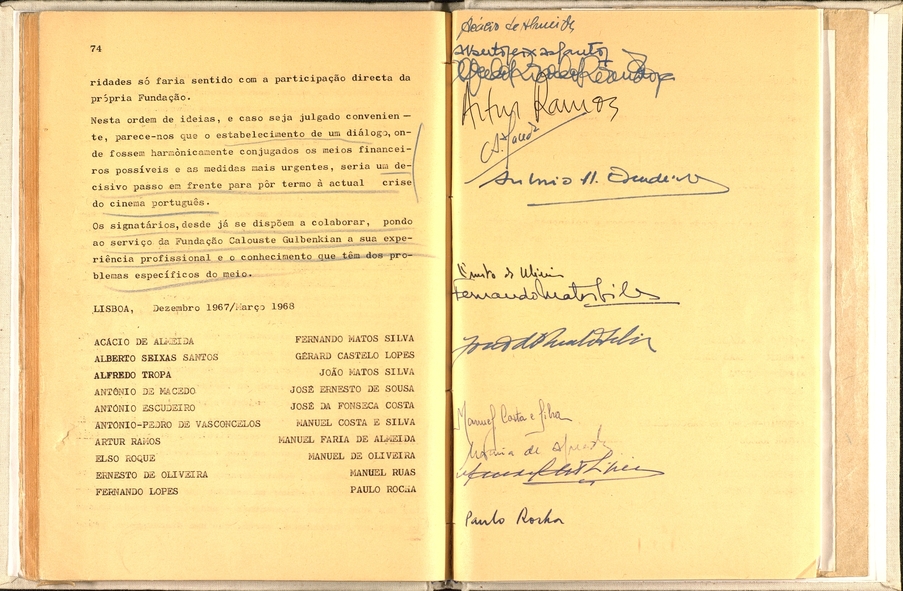 74
ridades só faria sentido com a participação directa da
própria Fundação.
Nesta ordem de ideias, e caso seja julgado convenien-
te, parece-nos que o estabelecimento de um diálogo, on-
de fossem harmònicamente conjugados os meios financei-
ros possíveis e as medidas mais urgentes, seria um de-
cisivo passo em frente para pôr termo à actual crise
do cinema português.
Os signatários, desde já se dispõem a colaborar, pondo
ao serviço da Fundação Calouste Gulbenkian a sua expe-
riência profissional e o conhecimento que têm dos pro-
blemas específicos do meio.
LISBOA, Dezembro 1967/Março 1968
ACÁCIO DE ALMEIDA FERNANDO MATOS SILVA
ALBERTO SEIXAS SANTOS GÉRARD CASTELO LOPES
ALFREDO TROPA JOÃO MATOS SILVA
ANTÓNIO DE MACEDO JOSÉ ERNESTO DE SOUSA
ANTÓNIO ESCUDEIRO JOSÉ DA FONSECA COSTA
ANTÓNIO-PEDRO DE VASCONCELOS MANUEL COSTA E SILVA
ARTUR RAMOS MANUEL FARIA DE ALMEIDA
ELSO ROQUE MANUEL DE OLIVEIRA
ERNESTO DE OLIVEIRA MANUEL RUAS
FERNANDO LOPES PAULO ROCHA
Acácio de Almeida
Alberto seixas santos
Artur Ramos
Fernando Matos Silva
Manuel Costa e Silva
Paulo Rocha